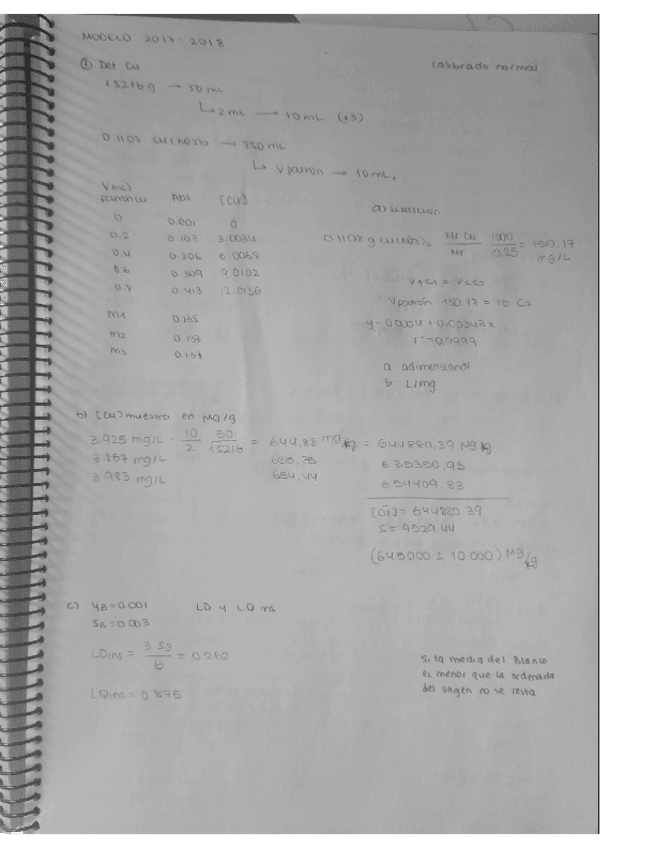 MODELO 2017-2018
① Det Cu
calibrado normal
1.5216 g → 50 mL
↳ 2 mL → 10 mL (x3)
→ 250 mL
↳ Vpatrón → 10 mL.
V(mL) patrón Cu Abs [Cu]
0 0.001 0
0.2 0.107 3.0034
0.4 0.206 6.0068
0.6 0.309 9.0102
0.8 0.413 12.0136
M1 0.135
M2 0.133
M3 0.137
a) ecuación
Mr Cu / Mr · 1000 / 0.25 = 150.17 mg/L
V1C1 = V2C2
Vpatrón 150.17 = 10 C2
r = 0.9999
a adimensional
b L/mg
b) [Cu] muestra en Mg/g
3.925 mg/L · 10/2 · 50/1.5216 = 644,88 mg/kg = 644880,39 Mg/kg
3.867 mg/L 635,35 635350,95
3.983 mg/L 654,44 654409.83
[Cu] = 644880.39
S = 9529.44
(645000 ± 10.000) Mg/kg
c) yB = 0.001 LD y LQ ins
SB = 0.003
LDins = 3 SB / b = 0.262
LQins = 0.875
Si la media del Blanco
es menor que la ordenada
del origen no se resta